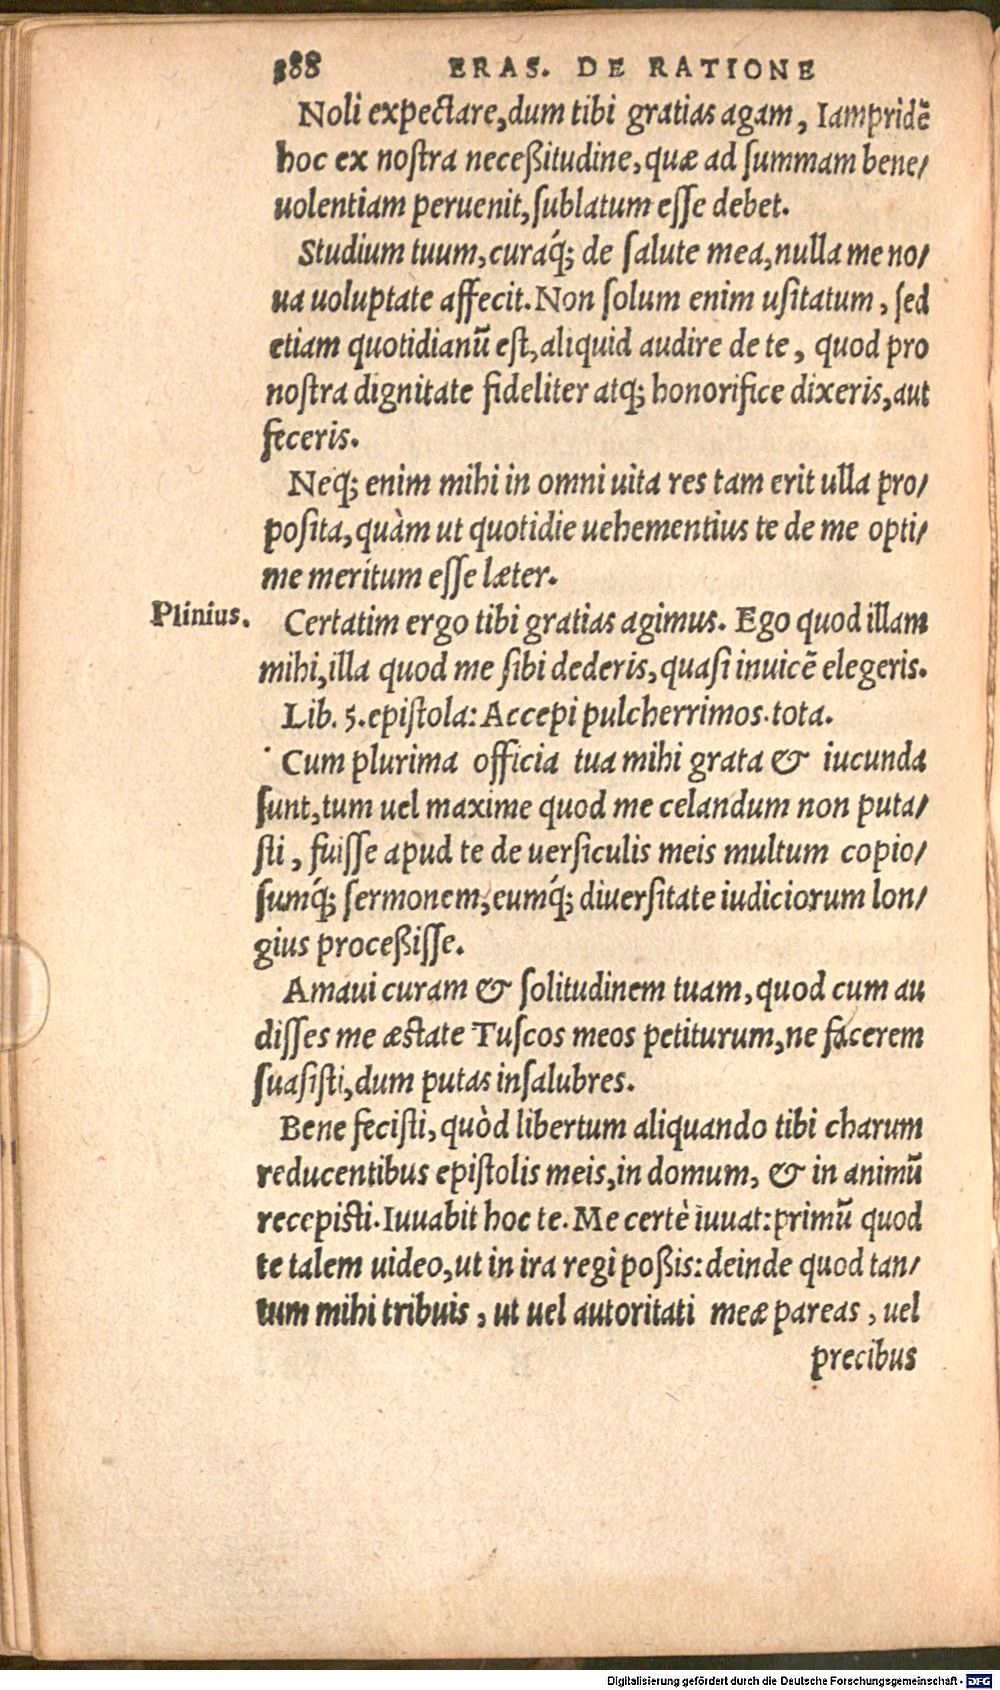 388 ERAS. DE RATIONE
Noli expectare,dum tibi gratias agam, Iampridẽ
hoc ex nostra neceßitudine,quæ ad summam bene/
uolentiam peruenit,sublatum esse debet.
Studium tuum,curaq́; de salute mea,nulla me no/
ua uoluptate affecit.Non solum enim usitatum, sed
etiam quotidianũ est,aliquid audire de te, quod pro
nostra dignitate fideliter atq; honorifice dixeris,aut
feceris.
Neq; enim mihi in omni uita res tam erit ulla pro/
posita,quàm ut quotidie uehementius te de me opti/
me meritum esse læter.
Plinius. Certatim ergo tibi gratias agimus. Ego quod illam
mihi,illa quod me sibi dederis,quasi inuicẽ elegeris.
Lib. 5.epistola: Accepi pulcherrimos.tota.
Cum plurima officia tua mihi grata & iucunda
sunt,tum uel maxime quod me celandum non puta/
sti, fuisse apud te de uersiculis meis multum copio/
sumq́; sermonem,eumq́; diuersitate iudiciorum lon/
gius proceßisse.
Amaui curam & solitudinem tuam,quod cum au
disses me æstate Tuscos meos petiturum,ne facerem
suasisti,dum putas insalubres.
Bene fecisti,quòd libertum aliquando tibi charum
reducentibus epistolis meis,in domum, & in animũ
recepisti.Iuuabit hoc te.Me certè iuuat:primũ quod
te talem uideo,ut in ira regi poßis:deinde quod tan/
tum mihi tribuis, ut uel autoritati meæ pareas, uel
precibus
Digitalisierung gefördert durch die Deutsche Forschungsgemeinschaft - DFG